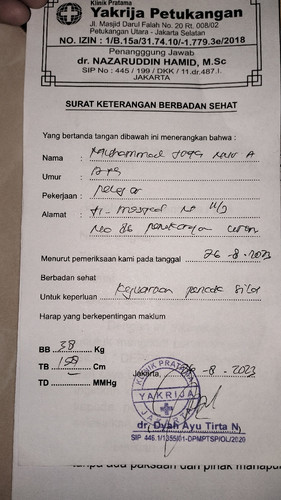 Klinik Pratama
Yakrija Petukangan
Jl. Masjid Darul Falah No. 20 Rt. 008/02
Petukangan Utara - Jakarta Selatan
NO. IZIN : 1/B.15a/31.74.10/-1.779.3e/2018
Penanggung Jawab
dr. NAZARUDDIN HAMID, M.Sc
SIP No : 445 / 199 / DKK / 11.dr.487.I.
JAKARTA
SURAT KETERANGAN BERBADAN SEHAT
Yang bertanda tangan dibawah ini menerangkan bahwa :
Nama : Muhammad A
Umur :
Pekerjaan : pelajar
Alamat : No
No 86 petukangan
Menurut pemeriksaan kami pada tanggal 26 - 8 - 2023
Berbadan sehat
Untuk keperluan : Kejuaraan pencak silat
Harap yang berkepentingan maklum
BB 38 Kg
TB 150 Cm
TD MMHg
Jakarta, - 8 - 2023
KLINIK PRATAMA
YAKRIJA
JAKARTA
dr. Dyah Ayu Tirta N
SIP 446.1/1355/01-DPMPTSP/OL/2020
tanpa ada paksaan dan pihak manapun